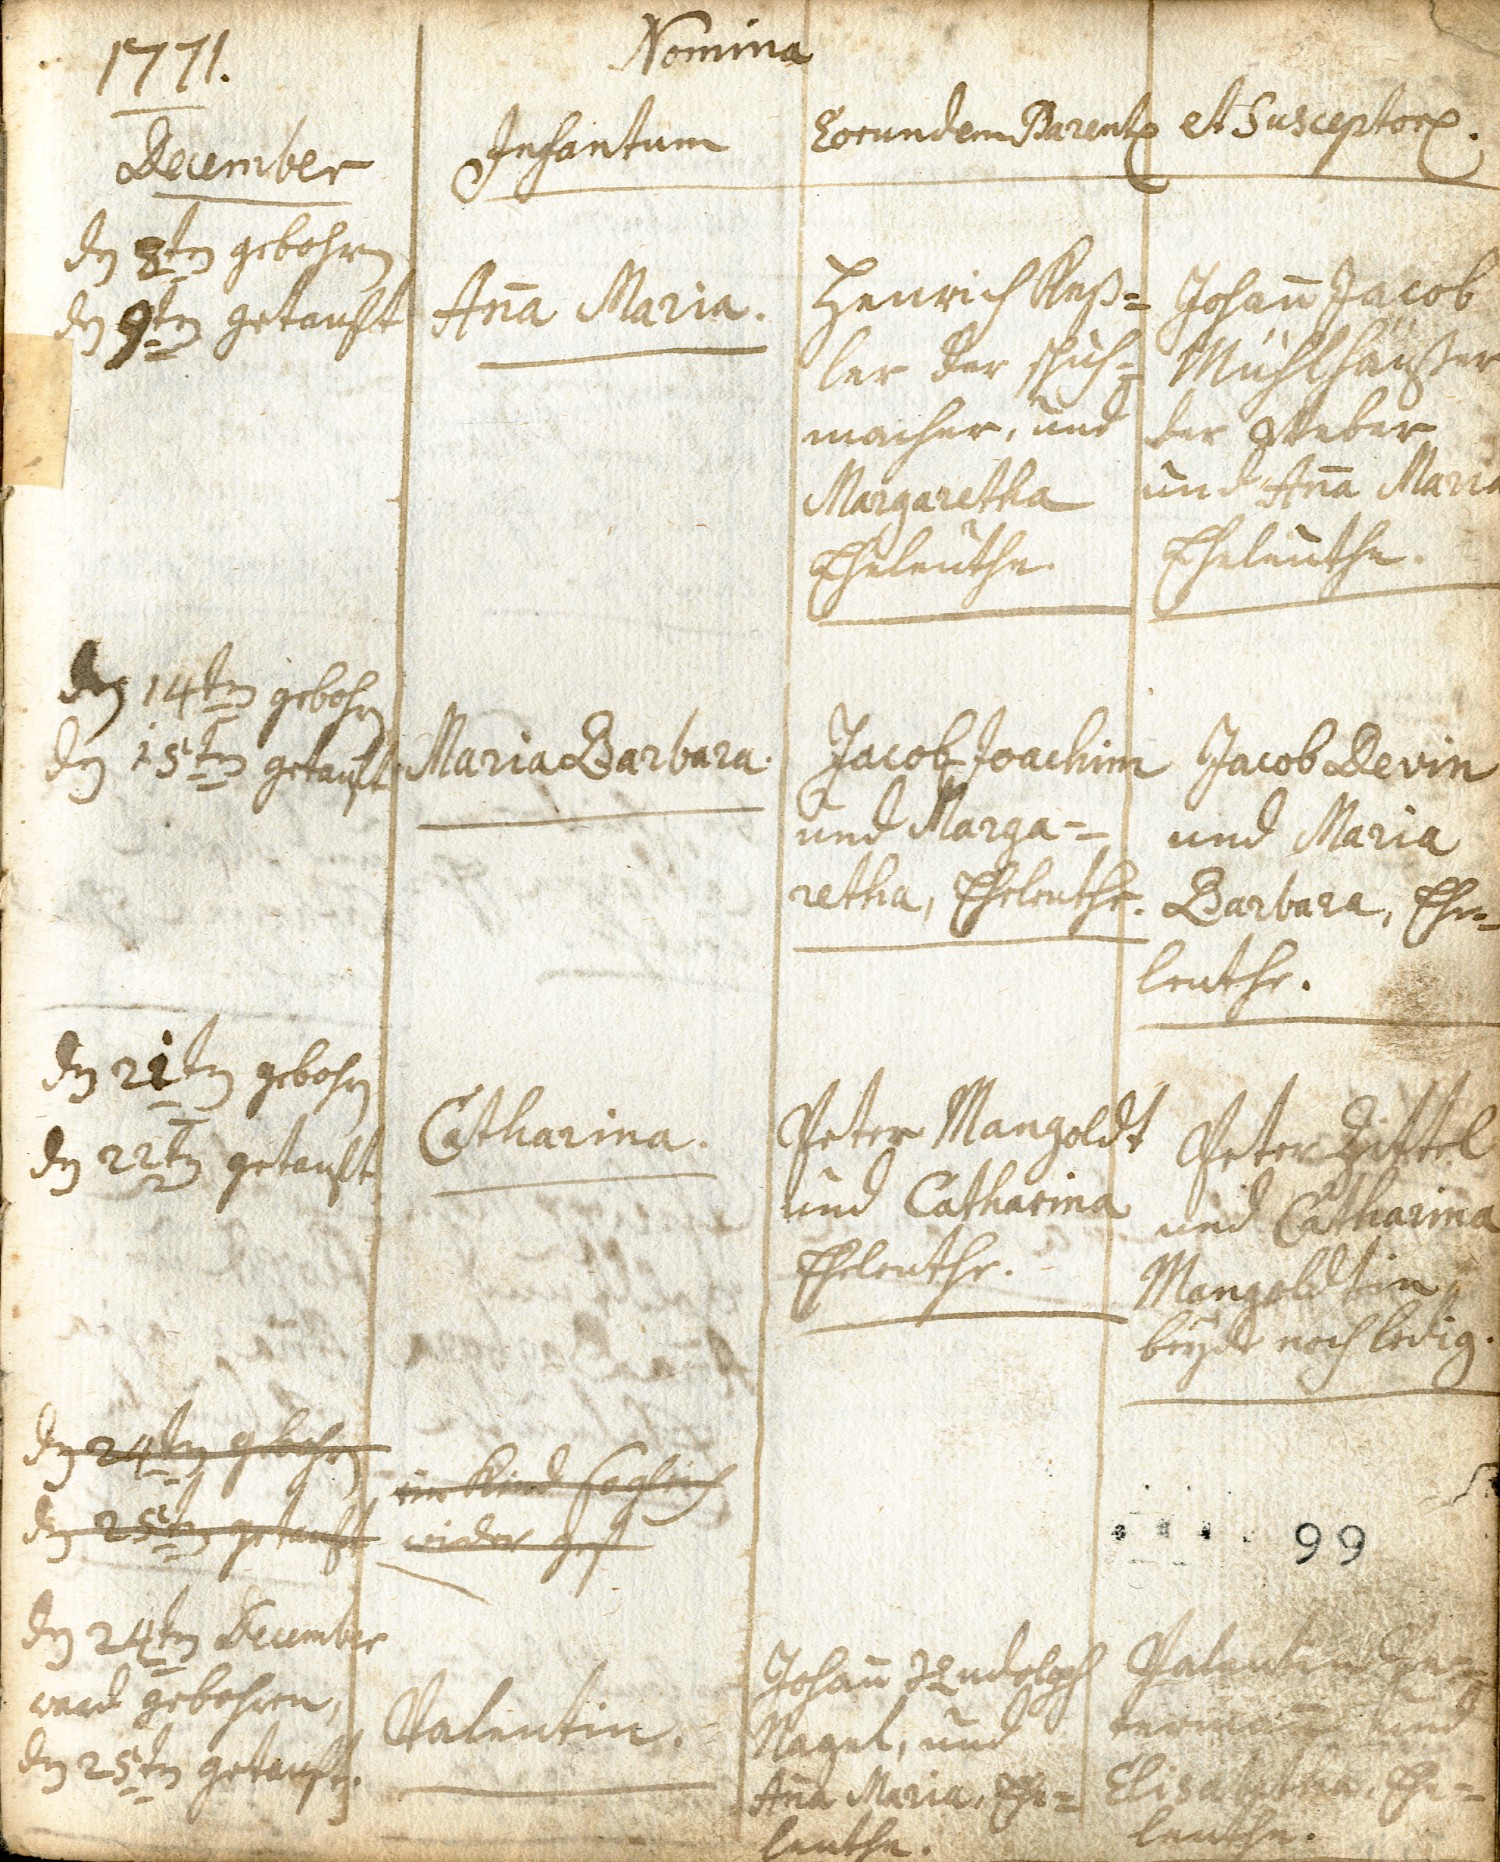 1771.
Nomina
December
Infantum
Eorundem Parentū et Susceptorū.
dn 8tn gebohrn
dn 9tn getauft
Anna Maria.
Henrich Keß=
ler der Schuh=
macher, und
Margaretha
Eheleuthe.
Johann Jacob
Mühlhäußer
der Weber
und Anna Maria
Eheleuthe.
dn 14tn gebohrn
dn 15tn getauft
Maria Barbara.
Jacob Joachim
und Marga=
retha, Eheleuthe.
Jacob Devin
und Maria
Barbara, Ehe=
leuthe.
dn 21tn gebohrn
dn 22tn getauft
Catharina.
Peter Mangoldt
und Catharina
Eheleuthe.
Peter Zittel
und Catharina
Mangoldtin
beyde noch ledig.
dn 24tn gebohrn
dn 25tn getauft
ein Kind sogleich
wieder gest
99
dn 24tn December
ward gebohren,
dn 25tn getauft.
Valentin.
Johann Rudolph
Nagel, und
Anna Maria, Ehe=
leuthe.
Valentin
und
Elisabetha, Ehe=
leuthe.